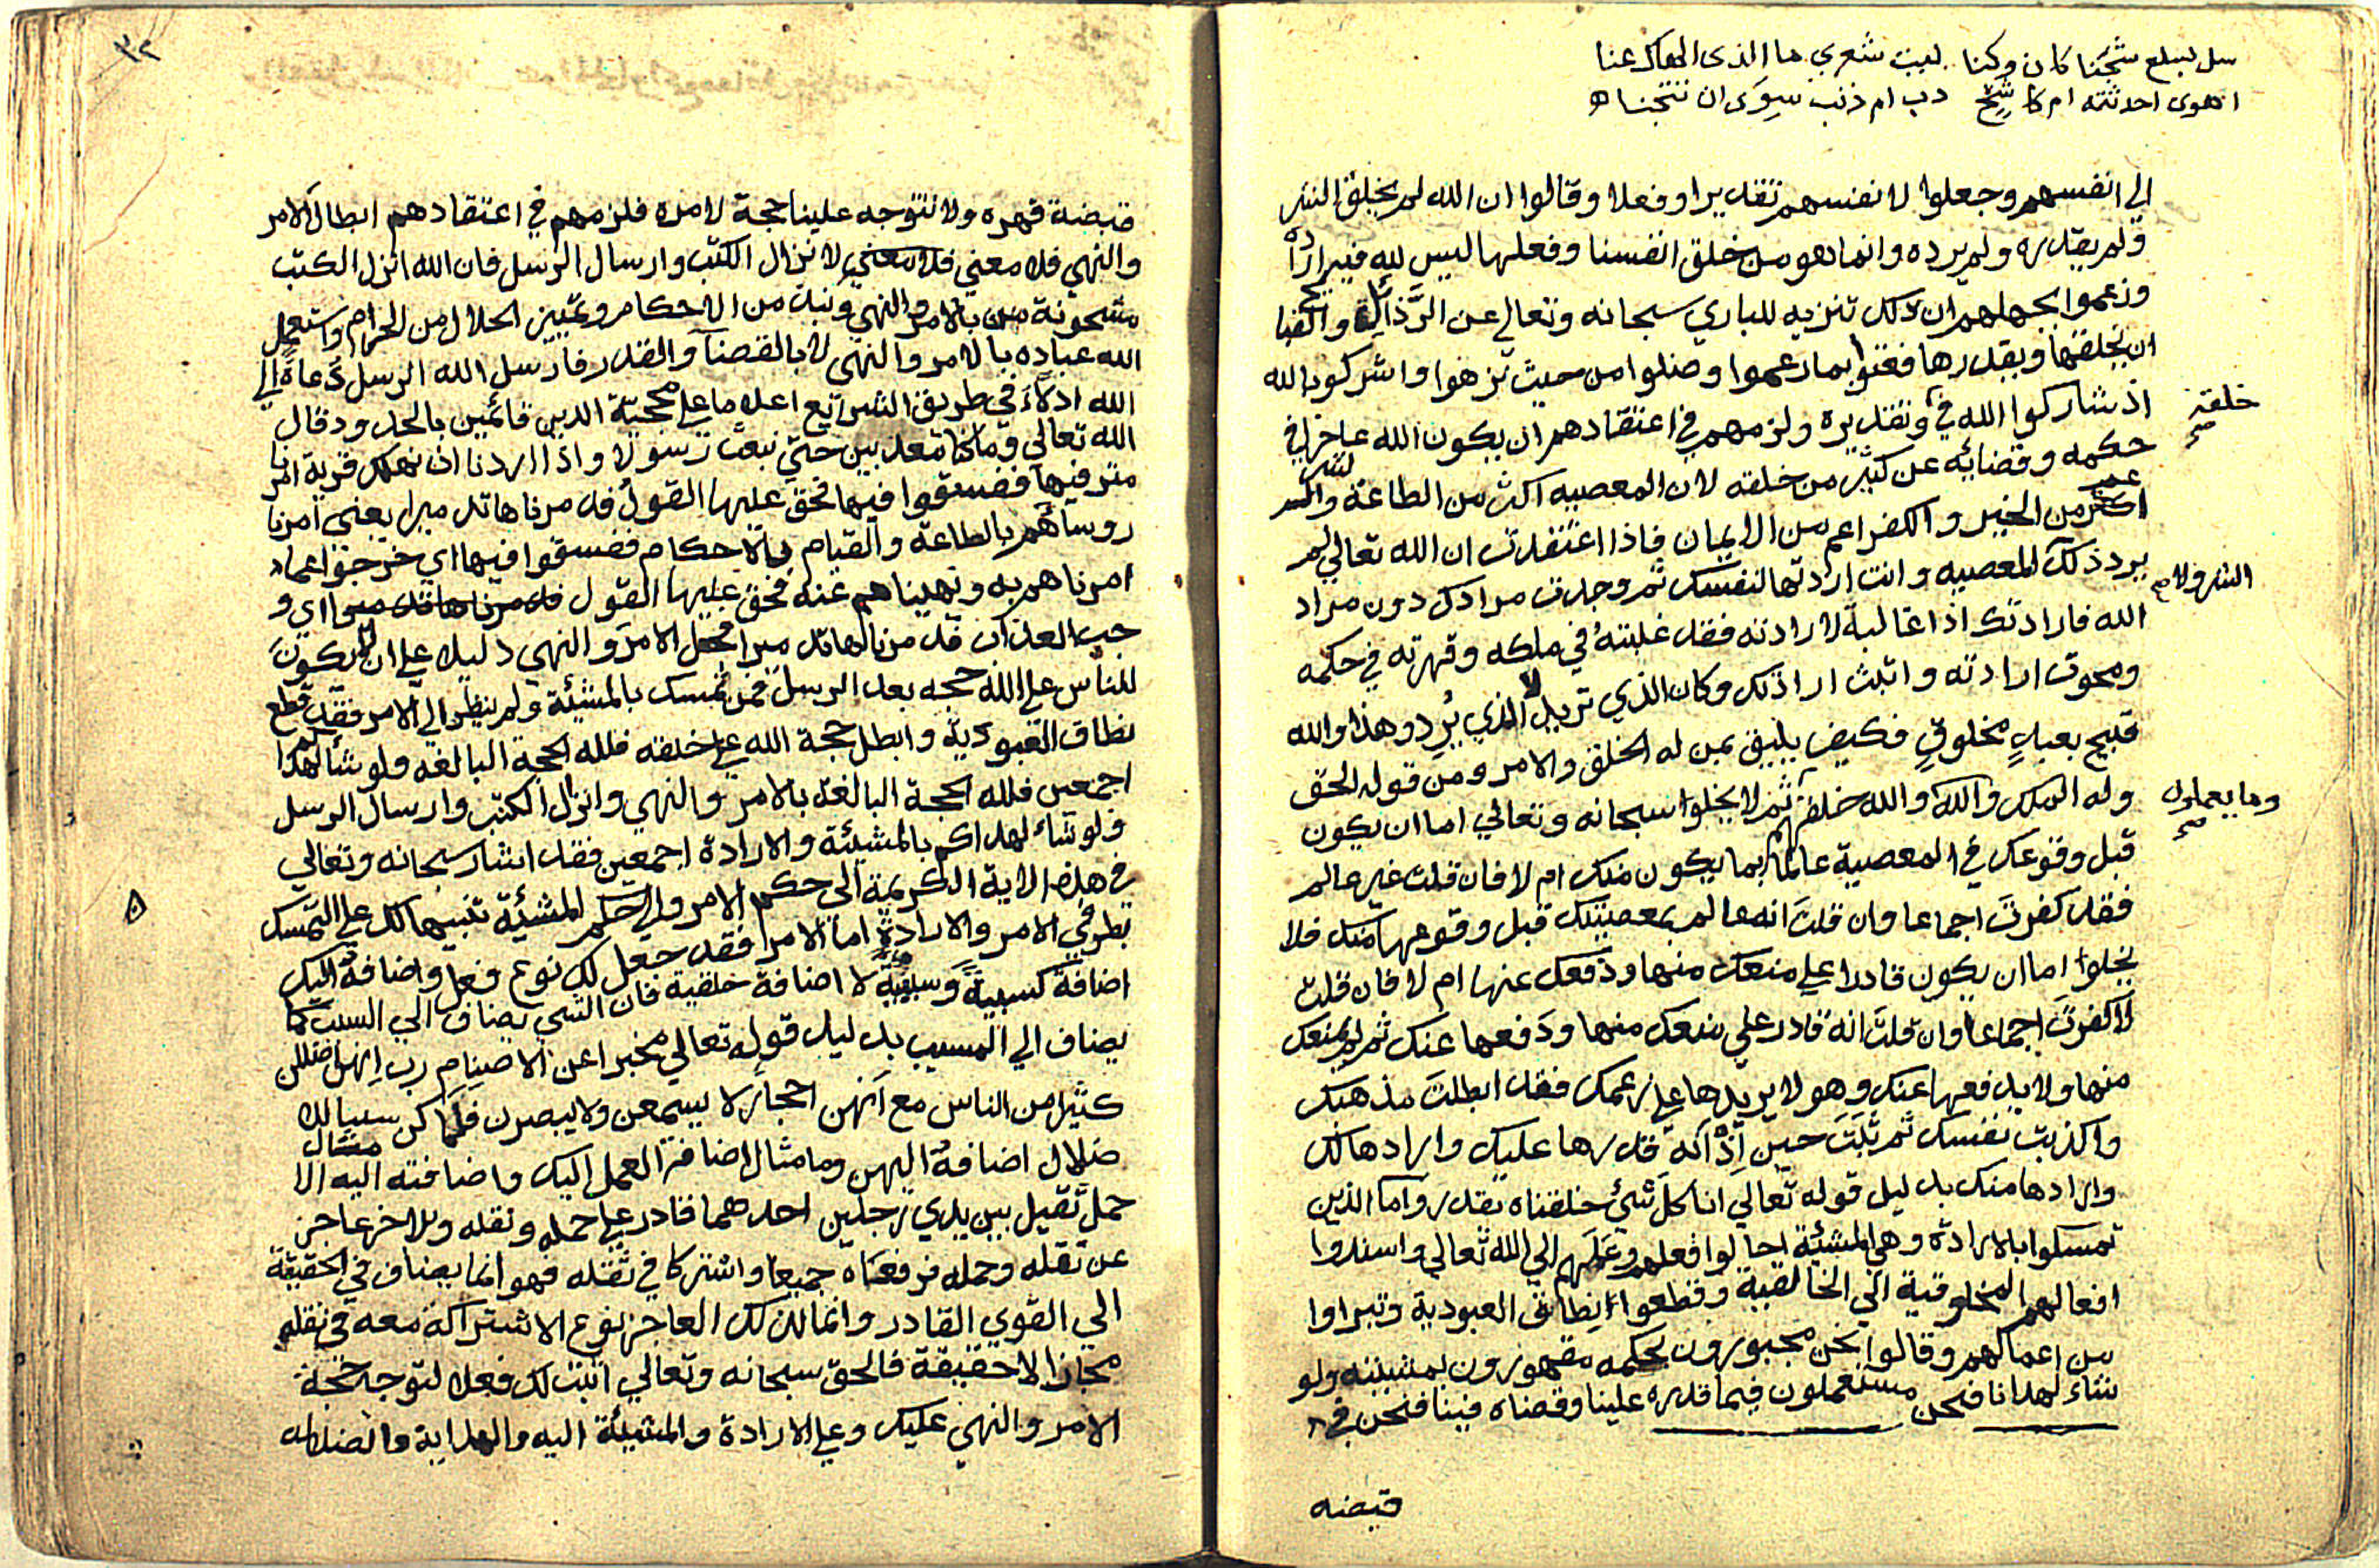 سل بسلع شجنا كان وكنا ليت شعري ما الذي الهاك عنا
اهوى احدثته ام كاشح دب ام ذنب سوى ان تتجنا
الي انفسهم وجعلوا لانفسهم تقديرا وفعلا وقالوا ان الله لم يخلق الشر
ولم يقدره ولم يرده وانما هو من خلق انفسنا وفعلها ليس لله فيه ارادة
وزعموا بجهلهم ان ذلك تنزيه للباري سبحانه وتعالي عن الرذائل والقبائح
ان يخلقها ويقدرها فغووا بما زعموا وضلوا من حيث نزهوا واشركوا بالله
اذ شاركوا الله في خلقه وتقديره ولزمهم في اعتقادهم ان يكون الله عاجزا في
حكمه وقضائه عن كثير من خلقه لان المعصيه اكثر من الطاعة والشر
اعم من الخير والكفر اعم من الايمان فاذا اعتقدت ان الله تعالي لم
يرد ذلك الشر ولا المعصيه وانت اردتها لنفسك ثم وجدت مرادك دون مراد
الله فارادتك اذا غالبة لارادته فقد غلبته في ملكه وقهرته في حكمه
ومحوت ارادته واثبت ارادتك وكان الذي تريد لا الذي يرد وهذا والله
قبيح بعبد مخلوق فكيف يليق بمن له الخلق والامر ومن قوله الحق
وله الملك والله خلقكم وما يعملون ثم لا يخلوا سبحانه وتعالي اما ان يكون
قبل وقوعك في المعصية عالما بما يكون منك ام لا فان قلت غير عالم
فقد كفرت اجماعا وان قلت انه عالم بمعصيتك قبل وقوعها منك فلا
يخلوا اما ان يكون قادرا علي منعك منها ودفعك عنها ام لا فان قلت
لا كفرت اجماعا وان قلت انه قادر علي منعك منها ودفعها عنك ثم لم يمنعك
منها ولا يدفعها عنك وهو لا يريدها علي زعمك فقد ابطلت مذهبك
واكذبت نفسك ثم ثبت حين اذ انه قدرها عليك وارادها لك
وارادها منك بدليل قوله تعالي انا كل شئ خلقناه بقدر واما الذين
تمسكوا بالارادة وهي المشيئة احالوا فعلهم وعملهم الي الله تعالي واسندوا
افعالهم المخلوقية الي الخالقية وقطعوا نطاق العبودية وتبراوا
من اعمالهم وقالوا نحن مجبورون بحكمه مقهورون بمشيئته ولو
شاء لهدانا فنحن مستعملون فيما قدره علينا وقضاه فينا فنحن في
قبضه
٣٢
قبضة قهره ولا تتوجه علينا حجة لامره فلزمهم في اعتقادهم ابطال الامر
والنهي فلا معني لانزال الكتب وارسال الرسل فان الله انزل الكتب
مشحونة بالامر والنهي ونبذ من الاحكام وتمييز الحلال من الحرام واستعمل
الله عباده بالامر والنهي لا بالقضآ والقدر فارسل الله الرسل دعاة الي
الله ادلآء في طريق الشرائع اعلاما علي محجة الدين قائمين بالحدود قال
الله تعالي وما كنا معذبين حتي نبعث رسولا واذا اردنا ان نهلك قرية امرنا
مترفيها ففسقوا فيها فحق عليها القول فدمرناها تدميرا يعني امرنا
روسآهم بالطاعة والقيام بالاحكام ففسقوا فيها اي خرجوا عما
امرناهم به ونهيناهم عنه فحق عليها القول اي و
جب العذاب فدمرناها تدميرا فجعل الامر والنهي دليلا علي ان لا يكون
للناس علي الله حجه بعد الرسل فمن تمسك بالمشيئة ولم ينظر الي الامر فقد قطع
نطاق العبودية وابطل حجة الله علي خلقه فلله الحجة البالغه فلو شا لهداكم
اجمعين فلله الحجة البالغة بالامر والنهي وانزال الكتب وارسال الرسل
ولو شاء لهداكم بالمشيئة والارادة اجمعين فقد اشار سبحانه وتعالي
في هذه الاية الكريمة الي حكم الامر والي حكم المشيئة تنبيها لك علي التمسك
بطرفي الامر والارادة اما الامر فقد جعل لك نوع فعل واضافه اليك
اضافة كسبية وسببية لا اضافة خلقية فان الشي يضاف الي السبب كما
يضاف الي المسبب بدليل قوله تعالي مخبرا عن الاصنام رب انهن اضللن
كثيرا من الناس مع انهن احجار لا يسمعن ولا يبصرن فلما كن سببا للا
ضلال اضافه اليهن وما مثال اضافة العمل اليك واضافته اليه الا مثال
حمل ثقيل بين يدي رجلين احدهما قادر علي حمله ونقله والاخر عاجز
عن نقله وحمله فرفعاه جميعا واشتركا في نقله فهو انما يضاف في الحقيقة
الي القوي القادر وانما لذلك العاجز نوع الاشتراك معه في نقله
مجازا لا حقيقة فالحق سبحانه وتعالي اثبت لك فعلا لتوجه حجة
الامر والنهي عليك وعلي الارادة والمشيئة اليه والهداية والضلاله